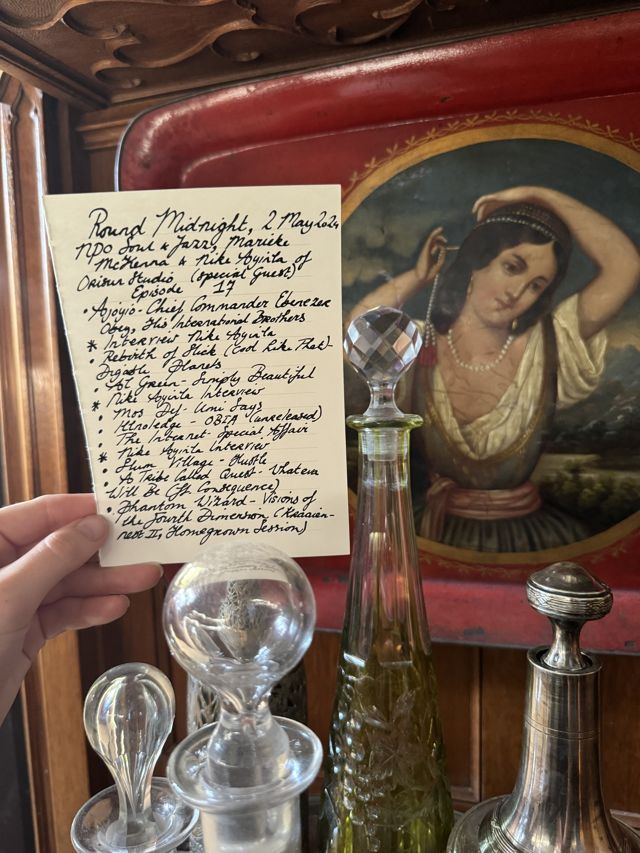 Round Midnight, 2 May 2024
NPO Soul & Jazz, Marieke
McKenna & Nike Ayinla of
Orisun Studio (special Guest)
Episode 17
• Ajoyio - Chief Commander Ebenezer
Obey, His International Brothers
* Interview Nike Ayinla
• Rebirth of Slick (Cool Like That) -
Digable Planets
• Al Green - Simply Beautiful
* Nike Ayinla Interview
• Mos Def - Umi Says
• Knxledge - OBIA (unreleased)
• The Internet - Special Affair
* Nike Ayinla Interview
• Slum Village - Hustle
• A Tribe Called Quest - Whateva
Will Be (ft Consequence)
• Phantom Wizard - Visions of
the Fourth Dimension (Kraaien-
nest II, Homegrown Session)